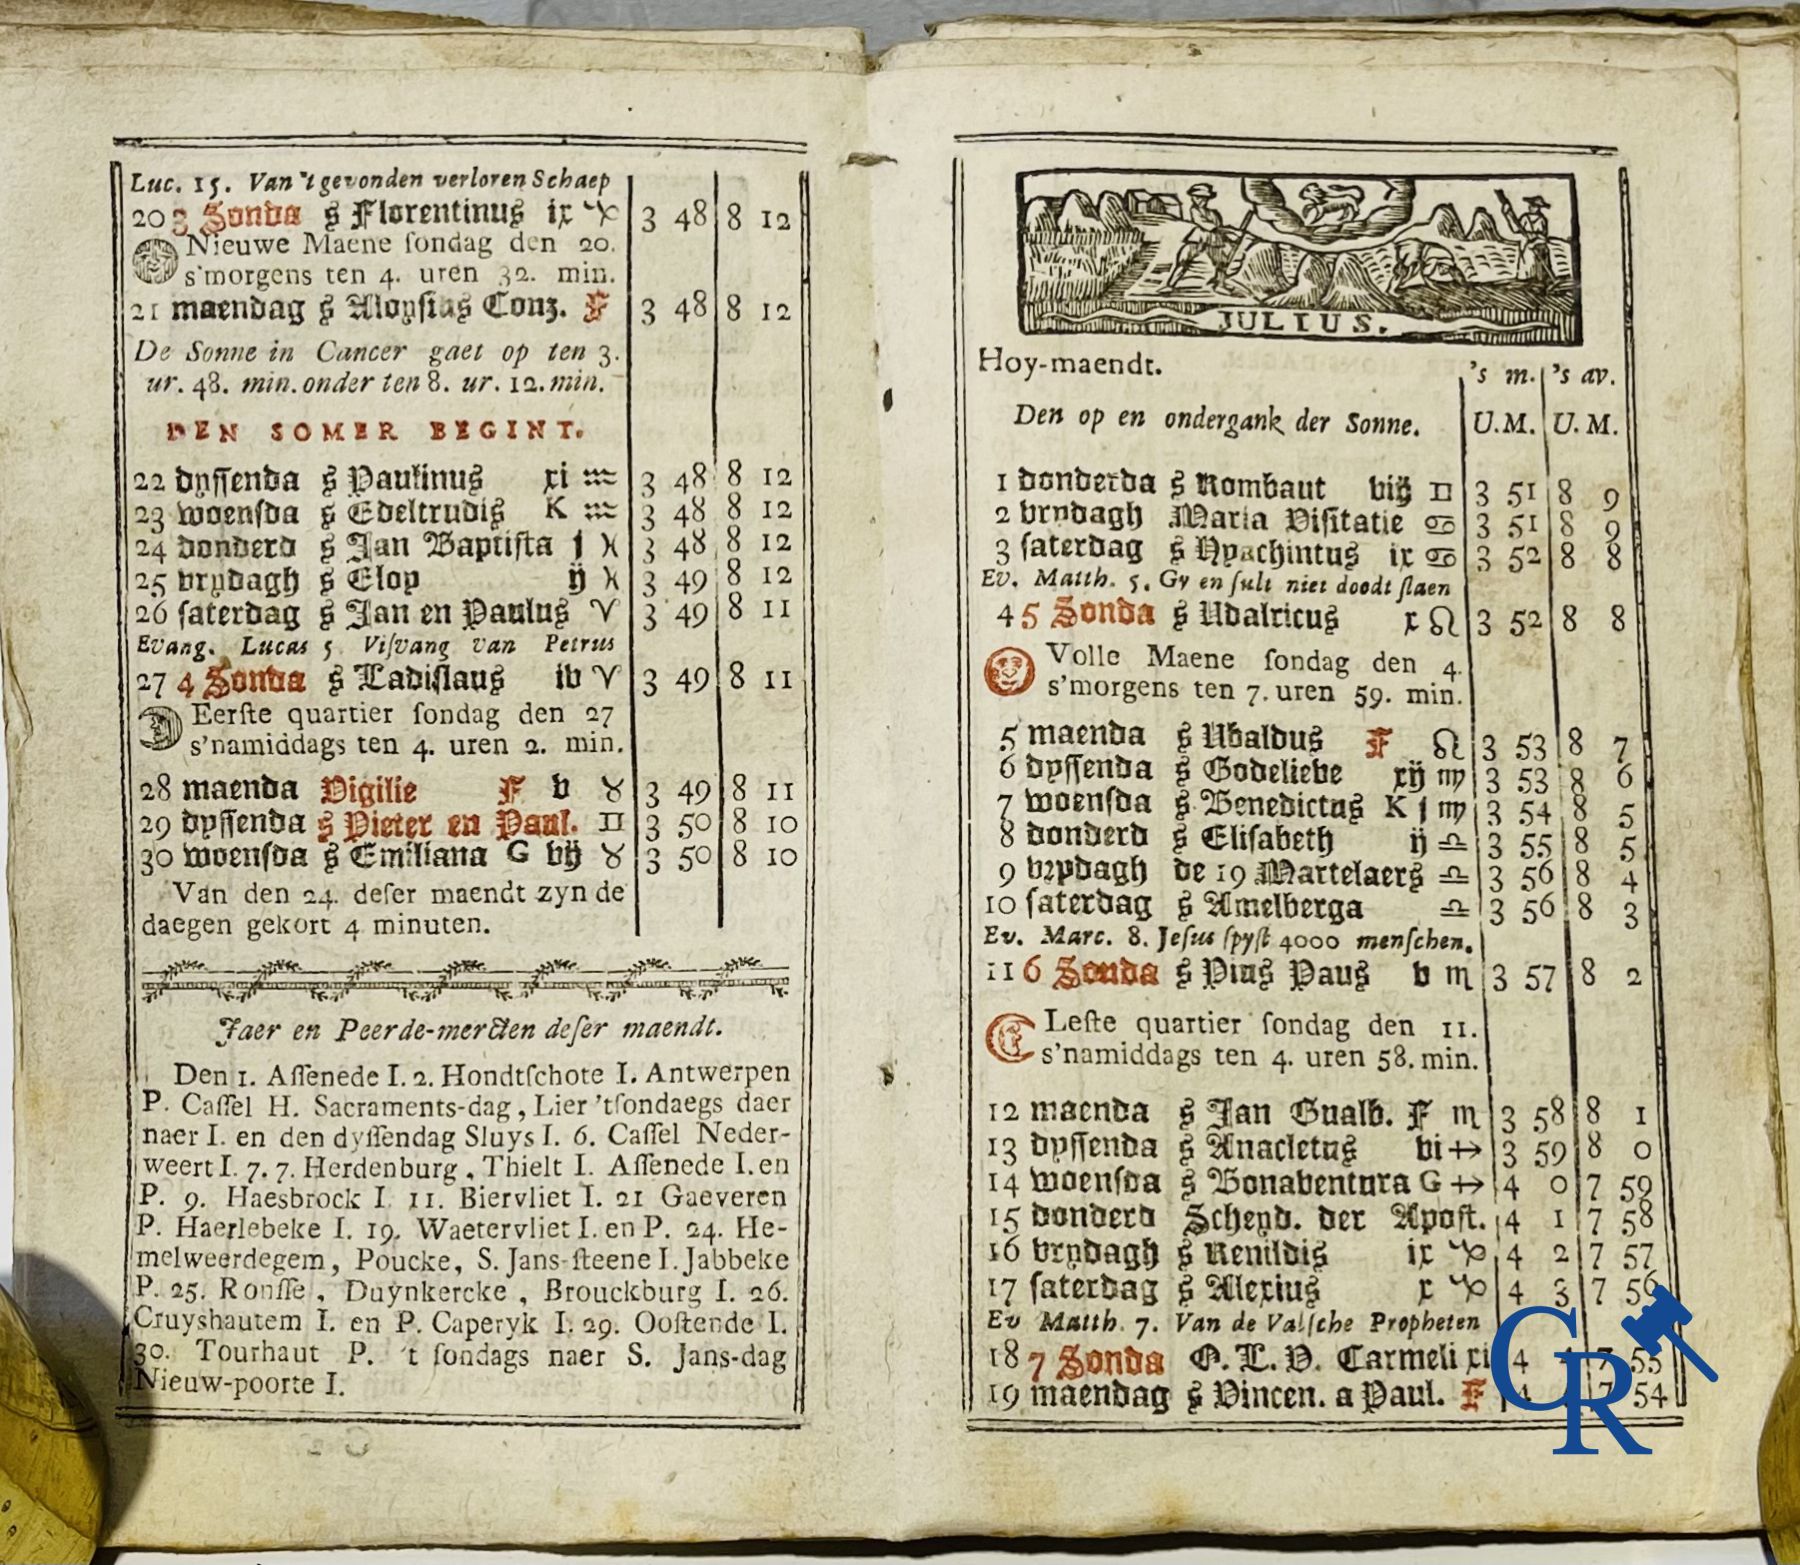 Luc. 15. Van 't gevonden verloren Schaep
20 3 Sonda s Florentinus ix ♑ 3 48 8 12
Nieuwe Maene sondag den 20.
s'morgens ten 4. uren 32. min.
21 maendag s Aloysius Conz. F 3 48 8 12
De Sonne in Cancer gaet op ten 3.
ur. 48. min. onder ten 8. ur. 12. min.
DEN SOMER BEGINT.
22 dyssenda s Paulinus xi ♒ 3 48 8 12
23 woensda s Edeltrudis K ♒ 3 48 8 12
24 donderd s Jan Baptista j ♓ 3 48 8 12
25 vrydagh s Eloy ij ♓ 3 49 8 12
26 saterdag s Jan en Paulus ♈ 3 49 8 11
Evang. Lucas 5 Visvang van Petrus
27 4 Sonda s Ladislaus iv ♈ 3 49 8 11
Eerste quartier sondag den 27
s'namiddags ten 4. uren 2. min.
28 maenda Vigilie F v ♉ 3 49 8 11
29 dyssenda s Pieter en Paul. ♊ 3 50 8 10
30 woensda s Emiliana G vij ♉ 3 50 8 10
Van den 24. deser maendt zyn de
daegen gekort 4 minuten.
Jaer en Peerde-merckten deser maendt.
Den 1. Assenede I. 2. Hondtschote I. Antwerpen
P. Cassel H. Sacraments-dag, Lier 'tsondaegs daer
naer I. en den dyssendag Sluys I. 6. Cassel Neder-
weert I. 7. 7. Herdenburg, Thielt I. Assenede I. en
P. 9. Haesbrock I. 11. Biervliet I. 21 Gaeveren
P. Haerlebeke I. 19. Waetervliet I. en P. 24. He-
melweerdegem, Poucke, S. Jans-steene I. Jabbeke
P. 25. Ronsse, Duynkercke, Brouckburg I. 26.
Cruyshautem I. en P. Caperyk I. 29. Oostende I.
30. Tourhaut P. 't sondags naer S. Jans-dag
Nieuw-poorte I.
JULIUS.
Hoy-maendt.
's m. 's av.
Den op en ondergank der Sonne. U.M. U.M.
1 donderda s Rombaut viij ♊ 3 51 8 9
2 vrydagh Maria Visitatie ♋ 3 51 8 9
3 saterdag s Hyachintus ix ♋ 3 52 8 8
Ev. Matth. 5. Gy en sult niet doodt slaen
4 5 Sonda s Udalricus x ♌ 3 52 8 8
Volle Maene sondag den 4.
s'morgens ten 7. uren 59. min.
5 maenda s Ubaldus F ♌ 3 53 8 7
6 dyssenda s Godelieve xij ♍ 3 53 8 6
7 woensda s Benedictus K j ♍ 3 54 8 5
8 donderd s Elisabeth ij ♎ 3 55 8 5
9 vrydagh de 19 Martelaers ♎ 3 56 8 4
10 saterdag s Amelberga ♎ 3 56 8 3
Ev. Marc. 8. Jesus spyst 4000 menschen.
11 6 Sonda s Pius Paus v ♏ 3 57 8 2
Leste quartier sondag den 11.
s'namiddags ten 4. uren 58. min.
12 maenda s Jan Gualb. F ♏ 3 58 8 1
13 dyssenda s Anacletus vi ♐ 3 59 8 0
14 woensda s Bonaventura G ♐ 4 0 7 59
15 donderd Scheyd. der Apost. 4 1 7 58
16 vrydagh s Renildis ix ♑ 4 2 7 57
17 saterdag s Alexius x ♑ 4 3 7 56
Ev Matth. 7. Van de Valsche Propheten
18 7 Sonda O. L. V. Carmeli xi 4 7 55
19 maendag s Vincen. a Paul. F 4 7 54
CR